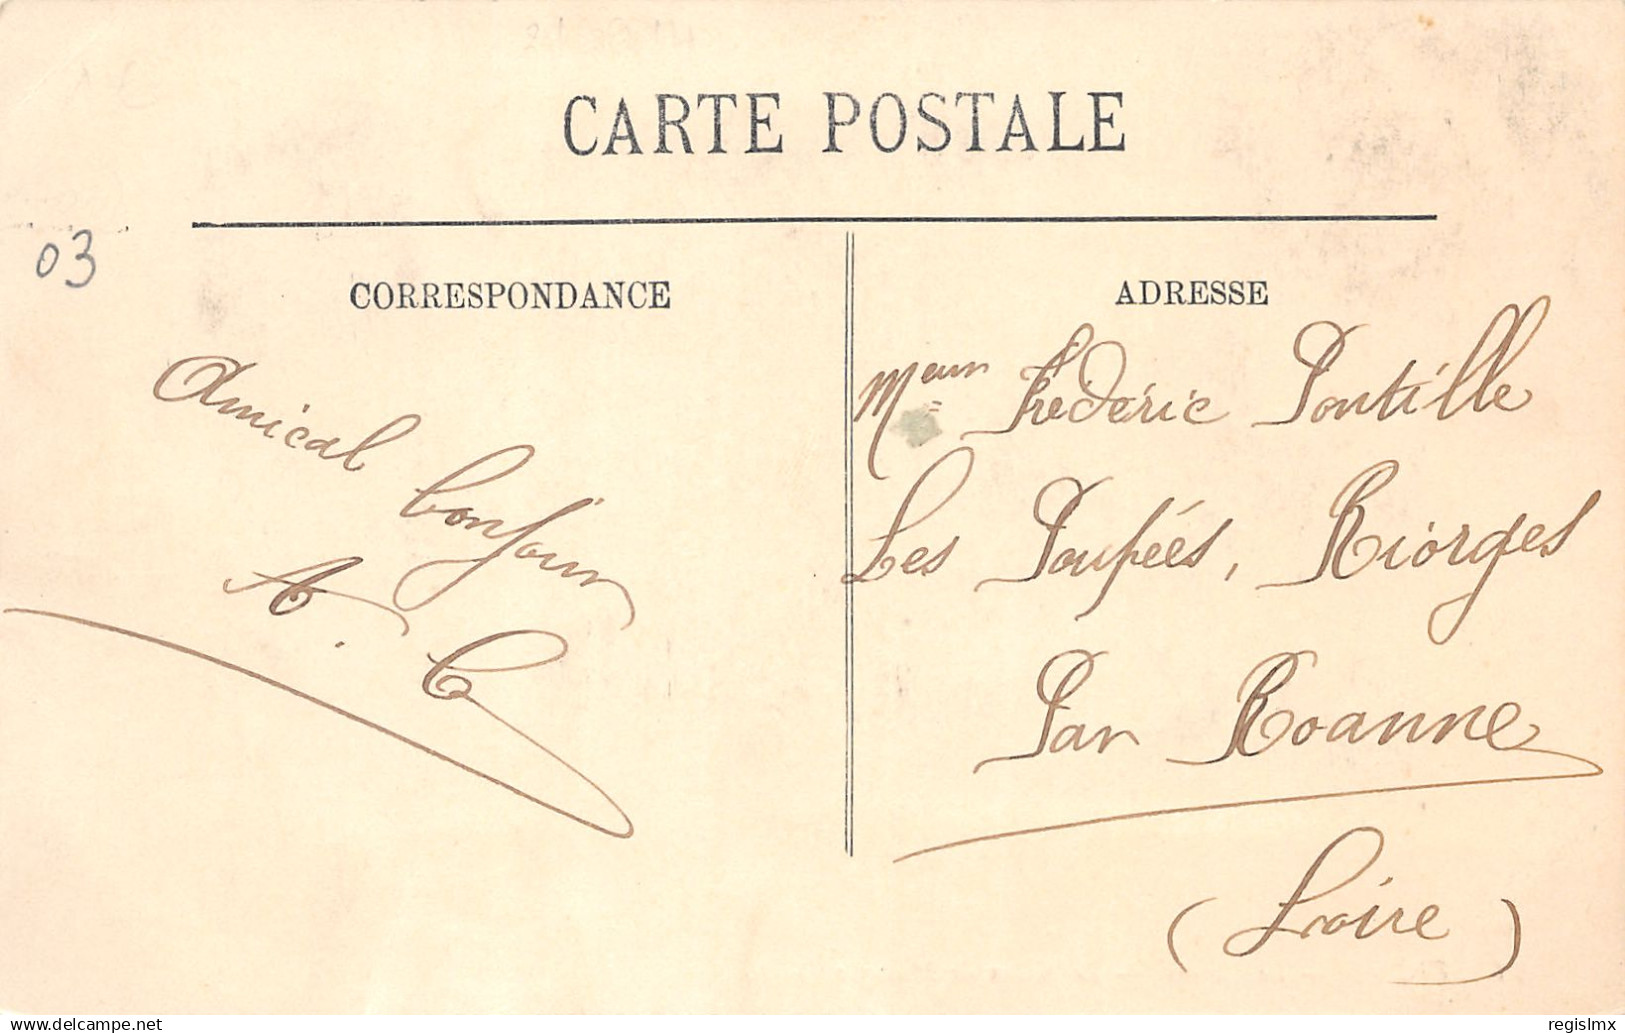 CARTE POSTALE
03
CORRESPONDANCE
Amical
bonjour
A. C
ADRESSE
Frédéric Pontille
Les Poupées, Riorges
Par Roanne
(Loire)
delcampe.net
regislmx